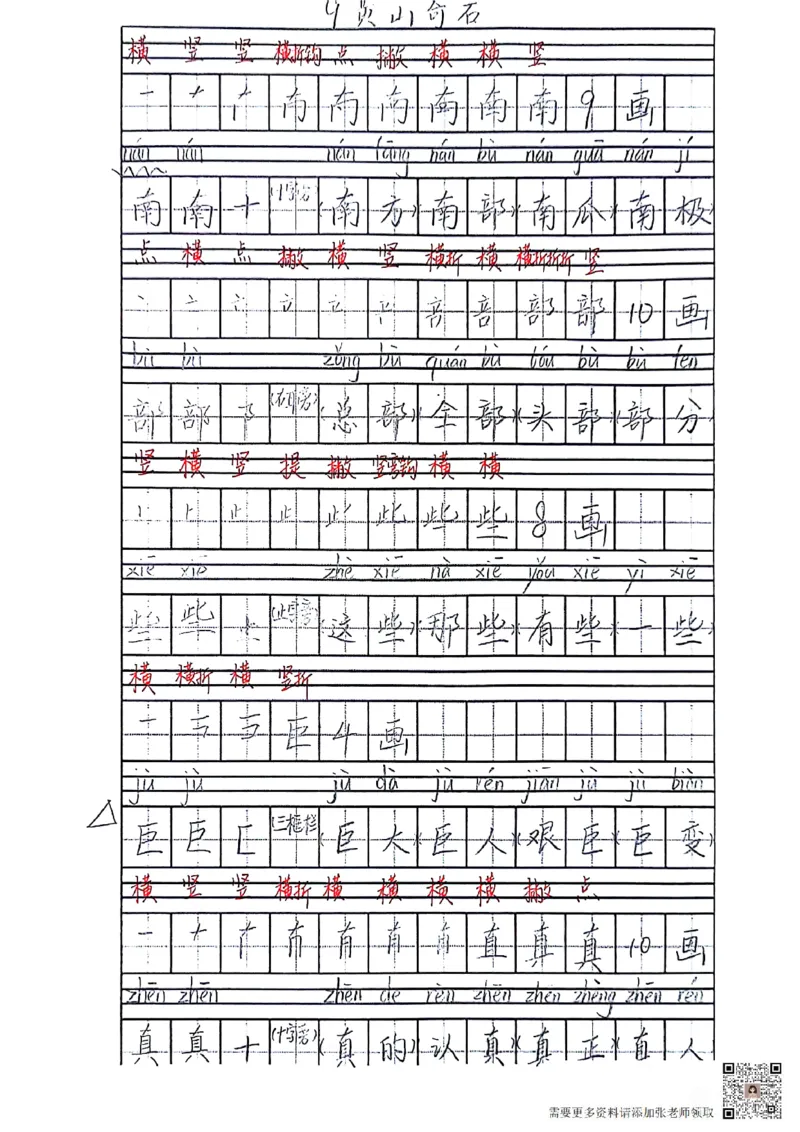 9 黄山奇石
横 竖 竖 横折钩 点 撇 横 横 竖
南 南 南 南 南 南 9 画
nán nán nán fāng nán bù nán guā nán jí
南 南 十 (十字旁) (南方)(南部)(南瓜)(南极)
点 横 点 撇 横 竖 横折 横 横折折折 竖
立 立 咅 咅 部 部 10 画
bù bù zǒng bù quán bù tóu bù bù fen
部 部 阝 (右耳旁) (总部)(全部)(头部)(部分)
竖 横 竖 提 撇 竖弯钩 横 横
止 此 些 些 8 画
xiē xiē zhè xiē nà xiē yǒu xiē yì xiē
些 些 止 (止字旁) (这些)(那些)(有些)(一些)
横 横折 横 竖折
一 巨 4 画
jù jù jù dà jù rén jiān jù jù biàn
巨 巨 匚 (三框栏) (巨大)(巨人)(艰巨)(巨变)
横 竖 竖 横折 横 横 横 横 撇 点
一 十 直 真 真 10 画
zhēn zhēn zhēn de rèn zhēn zhēn zhèng zhēn rén
真 真 十 (十字旁) (真的)(认真)(真正)(真人
需要更多资料请添加张老师领取